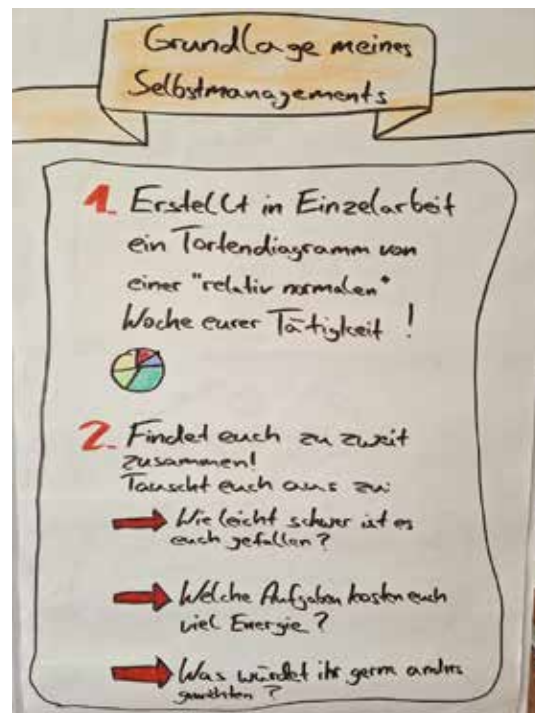 Grundlage meines
Selbstmanagements
1. Erstellt in Einzelarbeit
ein Tortendiagramm von
einer "relativ normalen"
Woche eurer Tätigkeit!
2. Findet euch zu zweit
zusammen!
Tauscht euch aus zu:
Wie leicht schwer ist es
euch gefallen?
Welche Aufgaben kosten euch
viel Energie?
Was würdet ihr gern anders
?